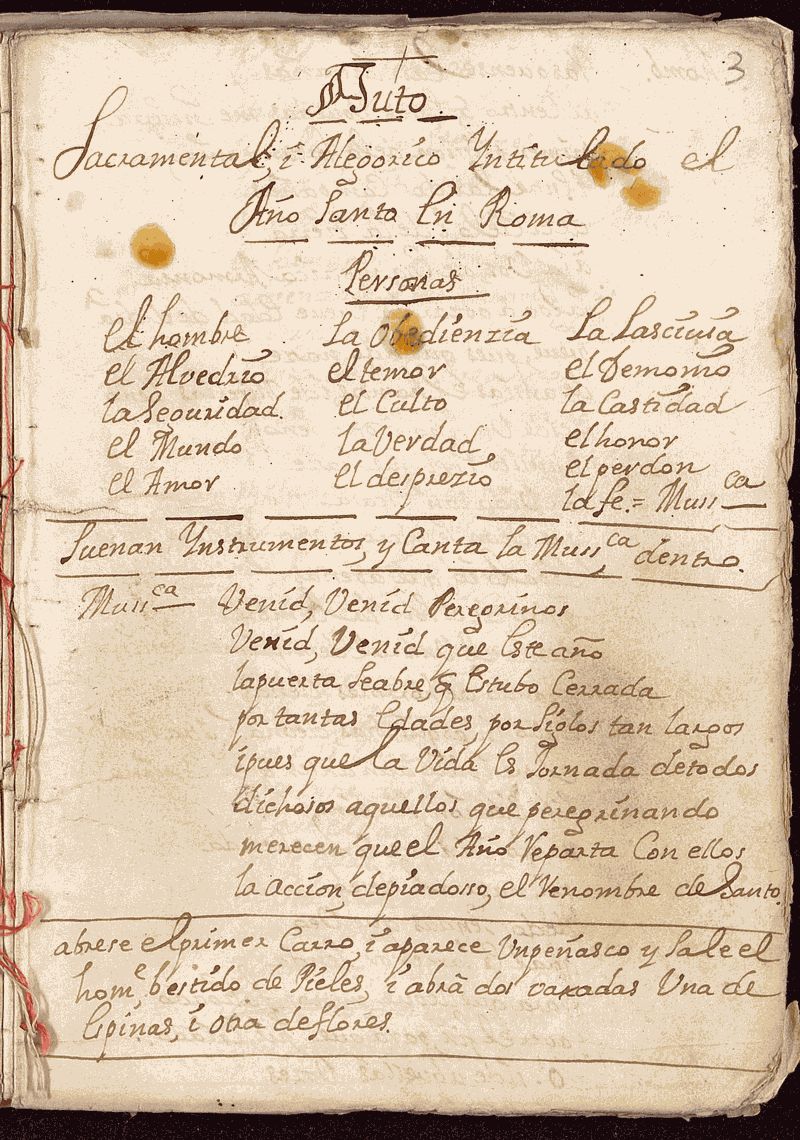 3
Auto
Sacramental, i Alegorico Yntitulado el
Año Santo En Roma
Personas
el hombre La Obedienzia La Lascivia
el Alvedrio el temor el Demonio
la Seguridad. el Culto la Castidad
el Mundo la Verdad el honor
el Amor el desprezio el perdon
la fe. = Mussca
Suenan Ynstrumentos, y Canta la Mussca dentro.
Mussca Venid, Venid Peregrinos
Venid, Venid que Este año
la puerta se abre, q̃ Estubo Cerrada
por tantas Edades, por siglos tan largos
i pues que la Vida Es Jornada de todos
dichosos aquellos que peregrinando
merecen que el Año Reparta Con ellos
la accion, de piadosso, el Renombre de Santo.
abrese el primer Carro, i aparece Un peñasco y sale el
home bestido de Pieles, i abrã dos vaxadas Una de
Espinas, i otra de flores.